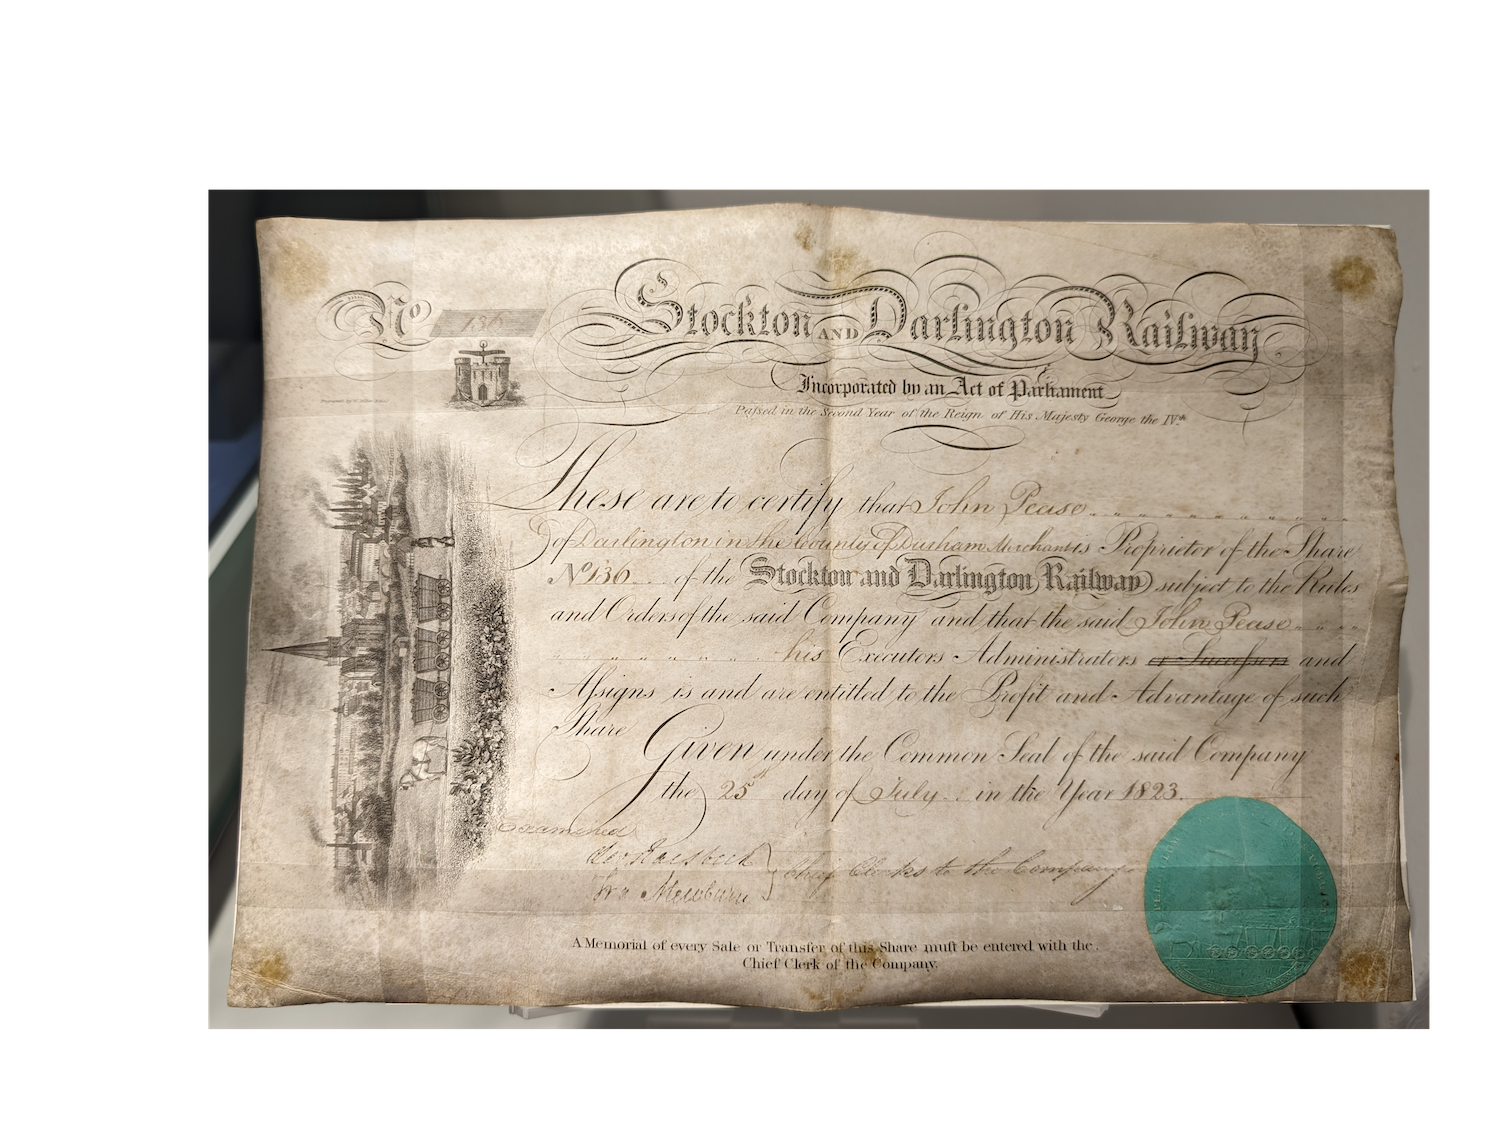 No 136 Stockton AND Darlington Railway
Incorporated by an Act of Parliament
Paſsed in the Second Year of the Reign of His Majesty George the IVth
These are to certify that John Pease
of Darlington in the County of Durham Merchant is Proprietor of the Share
No 136 of the Stockton and Darlington Railway subject to the Rules
and Orders of the said Company and that the said John Pease
his Executors Administrators and
Aſsigns is and are entitled to the Profit and Advantage of such
Share
Given under the Common Seal of the said Company
the 25th day of July in the Year 1823.
Examined
Leod Raisbeck
Fra Mewburn } Chief Clerks to the Company
A Memorial of every Sale or Transfer of this Share muſt be entered with the
Chief Clerk of the Company.